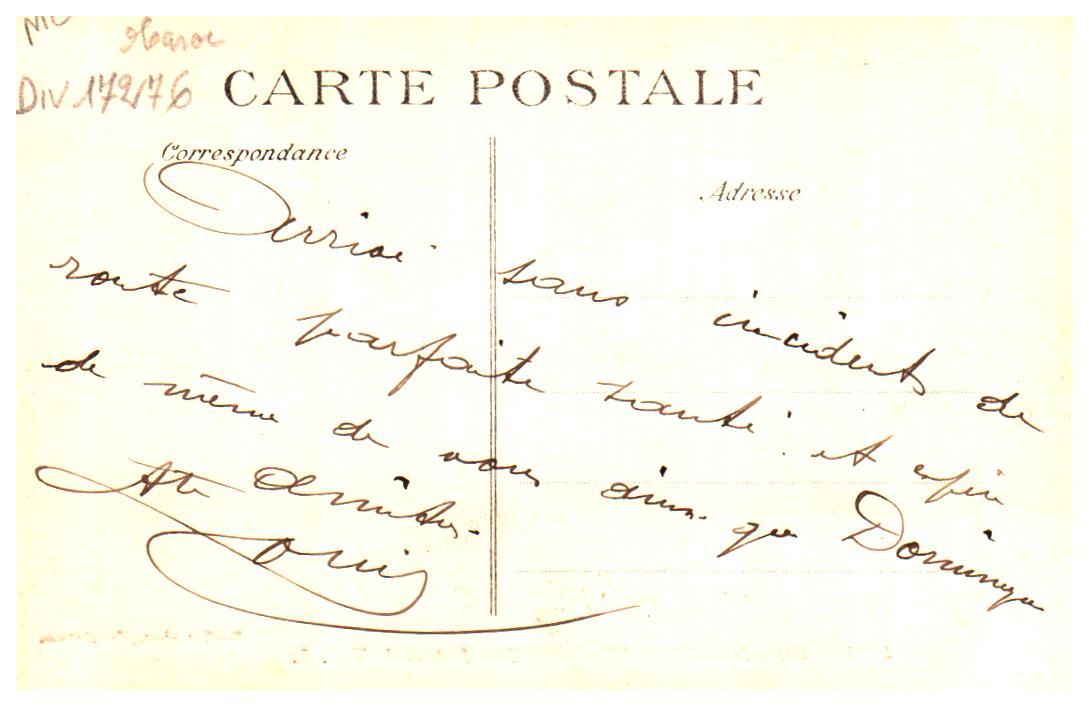 Maroc
DIV 172/76
CARTE POSTALE
Correspondance
Adresse
Arrivé sans incidents de
route parfaite santé et espère
de même de vous ainsi que Dominique
Amitiés
Louis